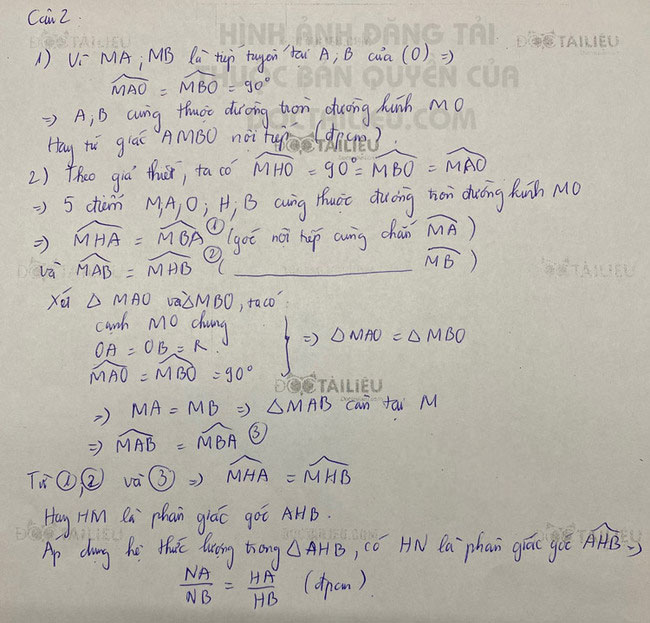 Câu 2.
1) Vì MA, MB là tiếp tuyến tại A, B của (O) =>
\widehat{MAO} = \widehat{MBO} = 90°
=> A, B cùng thuộc đường tròn đường kính MO
Hay tứ giác AMBO nội tiếp (đpcm).
2) Theo giả thiết, ta có \widehat{MHO} = 90° = \widehat{MBO} = \widehat{MAO}
=> 5 điểm M, A, O, H, B cùng thuộc đường tròn đường kính MO
=> \widehat{MHA} = \widehat{MBA} ① (góc nội tiếp cùng chắn \widehat{MA})
và \widehat{MAB} = \widehat{MHB} ② ( ________ \widehat{MB})
Xét △ MAO và △MBO, ta có:
cạnh MO chung
OA = OB = R.
\widehat{MAO} = \widehat{MBO} = 90°
=> △MAO = △MBO
=> MA = MB => △MAB cân tại M
=> \widehat{MAB} = \widehat{MBA} ③
Từ ①, ② và ③ => \widehat{MHA} = \widehat{MHB}
Hay HM là phân giác góc AHB.
Áp dụng hệ thức lượng trong △AHB, có HN là phân giác góc \widehat{AHB} =>
NA/NB = HA/HB (đpcm)
HÌNH ẢNH ĐĂNG TẢI
THUỘC BẢN QUYỀN CỦA
DOCTAILIEU.COM
ĐỌCTÀILIỆU